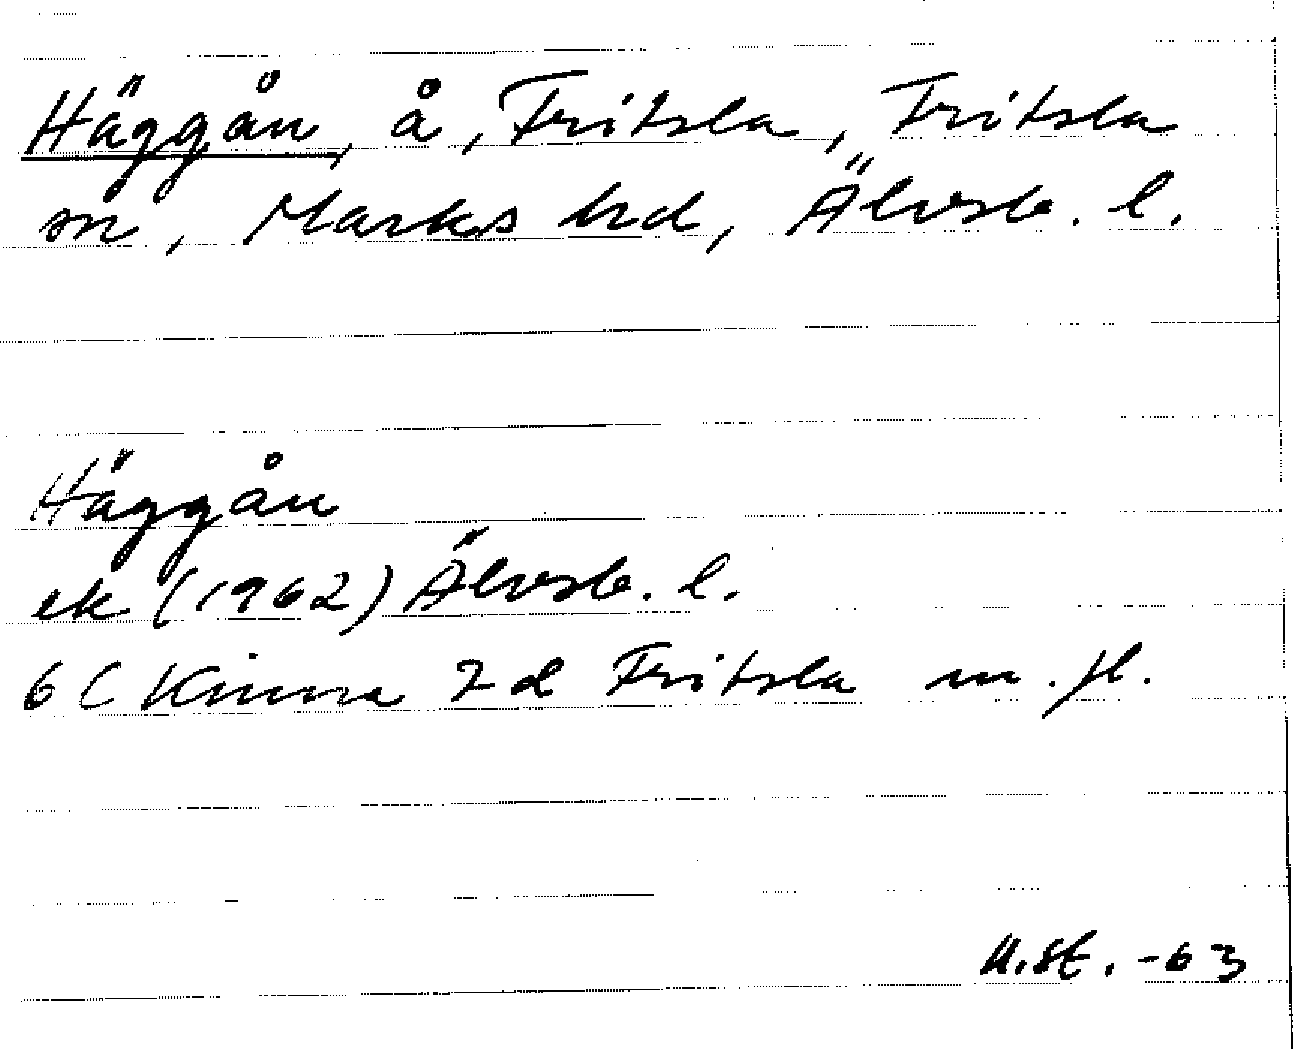 Häggån, å, Fritsla, Fritsla
sn, Marks hd, Älvsb. l.
Häggån
ek (1962) Älvsb. l.
6 C Kinna 2 d Fritsla m. fl.
U.St. -63